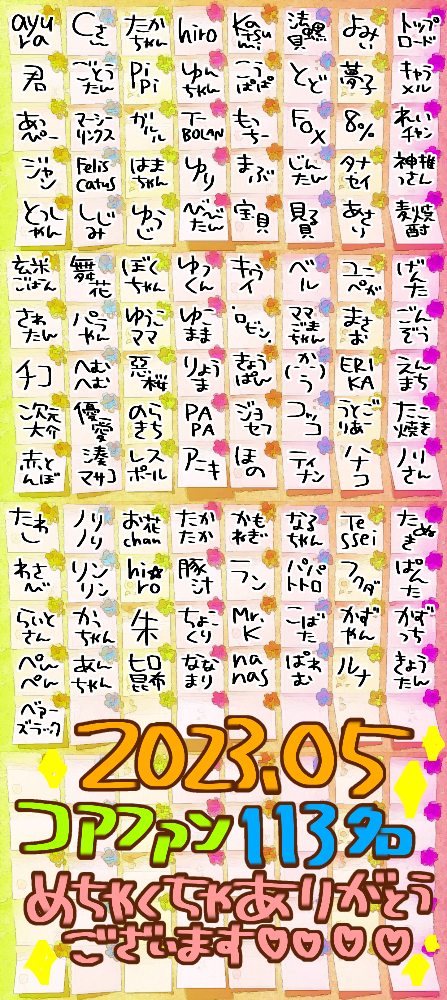 ayura Cさん たかちゃん hiro Katsumi. よみぃ トップロード
君 ごとうたん PiPi ゆんちゃん こうぱぱ とど 夢子 キャラメル
あっぴー マーシーリンクス かりル T-BOLAN もっちー FOX 8% れいチャン
ジャン Felis Catus はまちゃん ゆり まぶ じんたん タナセイ 神椎っさん
とっしゃん しじみ ゆうじ べべたん 宝貝 貝子貝 あさり 麦焼酎
玄米ごはん 舞花 ぼくちゃん ゆっくん キウイ ベル ユニペガ げんた
されたん パラやん ゆうこママ ゆこまま ロビン. ママごまちゃん まさお ごんぞう
チコ へむへむ 惡桜 りょうま きょうぱん (かか)う ERIKA えんまち
次元大介 優愛 のらきち PAPA ジョセフ コッコ うとごーりあ たこ焼き
赤とんぼ 湊マサコ レスポール アニキ ほの ティナン ハナコ ノリさん
たわし ノリノリ お花chan たかたか かもねぎ なるちゃん Tessei たぬき
わさび リンリン hi☆ro 豚汁 ラン パパトトロ フクダ ぱんた
らいとさん かっちゃん 朱 ちょこくり Mr.K こばた かずやん かずっち
ぺんぺん あんちゃん ヒロ昆布 ななまり nanas ぱれむ ルナ きょうたん
ベターズラック
2023.05
コアファン113名
めちゃくちゃありがとう
ございます♡♡♡♡